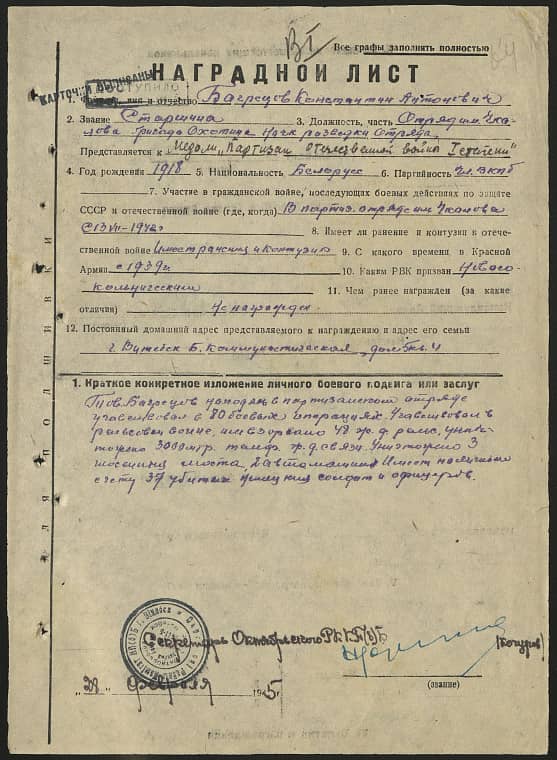 В I
Все графы заполнять полностью
НАГРАДНОЙ ЛИСТ
1. Фамилия, имя и отчество Багрецов Константин Антонович
2. Звание Старшина 3. Должность, часть Отряд им. Чка-
лова бригада Охотина Нач. разведки отряда
Представляется к Медали „Партизан отечественной войны I степени"
4. Год рождения 1918 5. Национальность Беларус 6. Партийность чл. ВКПб
7. Участие в гражданской войне, последующих боевых действиях по защите
СССР и отечественной войне (где, когда) В партиз. отряде им Чкалова
8. Имеет ли ранение и контузии в отече-
ственной войне 9. С какого времени в Красной
Армии с 1939г 10. Каким РВК призван Новосо-
11. Чем ранее награжден (за какие
отличия) Не награжден
12. Постоянный домашний адрес представляемого к награждению и адрес его семьи
г. Витебск Б. Коммунистическая, дом
1. Краткое конкретное изложение личного боевого подвига или заслуг
Тов. Багрецов находясь в партизанском отряде
участвовал в 80 боевых операциях. Участвовал в
рельсовой войне, им взорвано 48 ж.д. рельс, унич-
тожено 3000 мтр. телеф. ж.д. связи. Уничтожено 3
шоссейных моста, 2 автомашины Имеет на личном
счету 37 убитых немецких солдат и офицеров.
Секретарь Октябрьского РК КП(б)Б
„28" февраля 1945 г.
(звание)